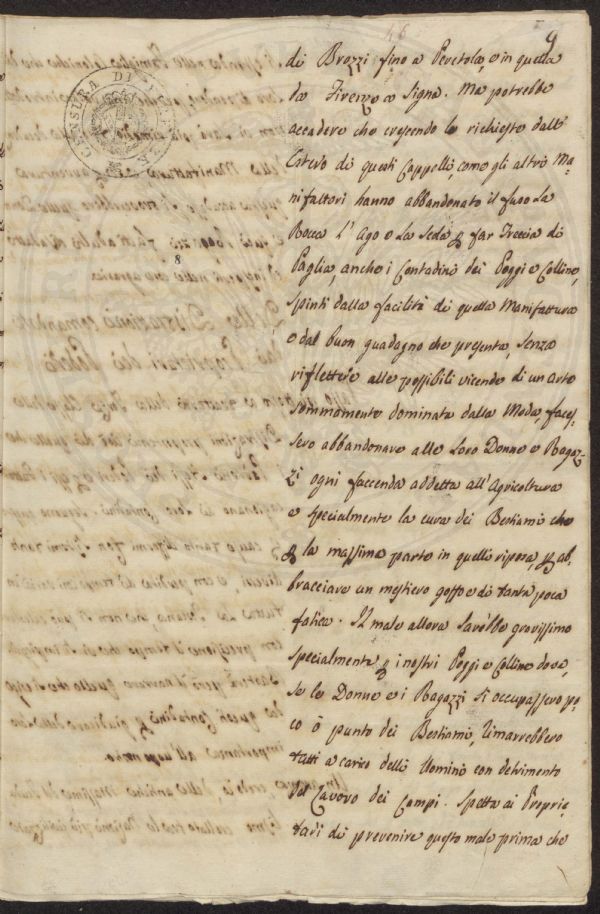 9
di Brozzi fino a Peretola, o in quella
da Firenze a Signa. Ma potrebbe
accadere che crescendo le richieste dall'
Estero di questi Cappelli, come gli altri Ma-
nifattori hanno abbandonato il fuso La
Rocca L'Ago e La Seta p far Treccia di
Paglia, anche i Contadini dei Poggi e Colline,
spinti dalla facilità di questa Manifattura
e dal buon guadagno che presenta, senza
riflettere alle possibili vicende di un arte
sommamente dominata dalla Moda, faces-
sero abbandonare alle Loro Donne e Ragaz-
zi ogni faccenda addetta all'Agricoltura
e specialmente la cura dei Bestiami che
p la massima parte in quelli riposa p ab-
bracciare un mestiero goffo e di tanta poca
fatica. Il male allora sarebbe gravissimo
specialmente p i nostri Poggi e Colline dove,
se le Donne e i Ragazzi si occupassero po-
co ò punto dei Bestiami, rimarrebbero
tutti a carico delli Uomini con detrimento
del Lavoro dei Campi. Spetta ai Proprie-
tarj di prevenire questo male prima che
CENSURA DI
8